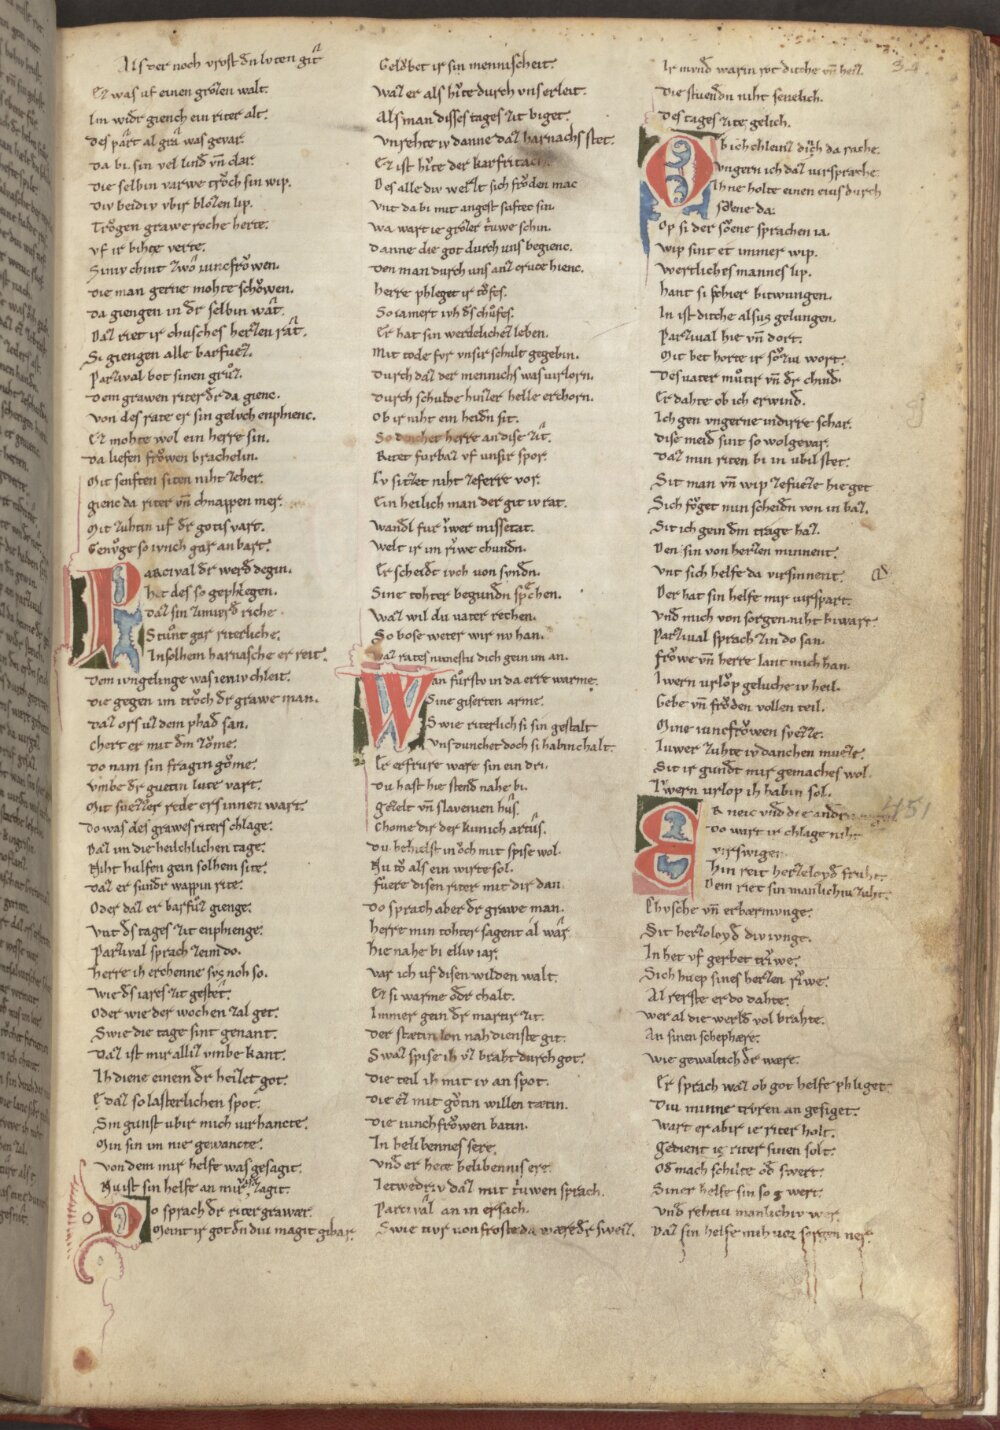 Als der noch vrost dn luten git
Ez was uf einen grozen walt.
Im widr giench ein riter alt.
Des part al gra was gevar.
Da bi sin vel lind vn clar.
Die selbin varwe troch sin wip.
Div beidiv vbir blozen lip.
Trogen grawe roche herte.
vf ir bihte verte.
Siniv chint zwo iuncfrowen.
Die man gerne mohte schowen.
Da giengen in dr selbin wat.
Daz riet ir chusches herzen rat.
Si giengen alle barfuez.
Parzival bot sinen gruz.
Dem grawen riter dr da gienc.
von des rate er sin geluch enphienc.
Ez mohte wol ein herre sin.
Da liefen frowen brachelin.
Mit senften siten niht zeher.
gienc da riter vn chnappen mer.
Mit zuhtin uf dr gotis vart.
Genuge so ivnch gar an bart.
Parcival dr werd degin.
het des so gephlegen.
Daz sin zimierd riche
Stunt gar riterliche.
In solhem harnasche er reit.
Dem ivngelinge was ieniv chleit.
Die gegen im troch dr grawe man.
Daz ors uz dem phad san.
chert er mit dm zome.
Do nam sin fragin gome.
vmbe dr guetin lute vart.
Mit suezzer rede ers innen wart.
Do was des grawes riters chlage.
Daz im die heilchlichen tage.
Niht hulfen gein solhem site.
Daz er sundr wappin rite.
Oder daz er barfuz gienge.
vnt ds tages zit enphienge.
Parzival sprach zeim do.
herre ih erchenne sus noh so.
wie ds iares zit gestet.
Oder wie der wochen zal get.
Swie die tage sint genant.
Daz ist mir alliz vmbe kant.
Ih diene einem dr heizet got.
E daz so lasterlichen spot.
Sin gunst ubir mich virhancte.
Min sin im nie gewancte.
von dem mir helfe was gesagit.
Nu ist sin helfe an mir virzagit.
Do sprach dr riter grawar.
Meint ir got dn div magit gibar.
Geloibet ir sin mennischeit.
waz er als hute durch vns erleit.
Als man disses tages zit biget.
vnrehte iv danne daz harnachs stet.
Ez ist hute der karfritach.
Des alle div werlt sich froden mac
vnt da bi mit angest suftec sin.
wa wart ie grozer truwe schin.
Danne die got durch uns begienc.
Den man durch uns anz cruce hienc.
herre phleget ir tofes.
So iamert ivh ds chufes.
Er hat sin werdelichez leben.
Mit tode fvr vnsir schult gegebin.
Durch daz der mennichs was virlorn.
Durch schulde hutler helle erchorn.
Ob ir niht ein heidn sit.
So denchet herre an dise zit.
Ritet fvrbaz vf unsir spor.
Ev sitzet niht zeferre vor.
Ein heilich man der git iv rat.
wandl fur iwer missetat.
welt ir im riwe chundn.
Er scheidt ivch von syndn.
Sine tohter begundn sprechen.
waz wil du vater rechen.
So bose weter wir nv han.
waz rates nimestu dich gein im an.
wan furstv in da erre warme.
Sine giserten arme.
Swie riterlich si sin gestalt
vns dunchet doch si habin chalt.
Er erfrure ware sin ein dri.
Du hast hie stend nahe bi.
gezelt vn slavenien hus.
Chome dir der kunich artus.
Du behielst in och mit spise wol.
Nu to als ein wirte sol.
fuere disen riter mit dir dan
Do sprach aber dr grawe man.
herre min tohter sagent al war
hie nahe bi elliv iar.
var ich uf disen wilden walt.
Ez si warme odr chalt.
Immer gein dr martir zit.
Der stætin lon nah dienste git.
Swaz spise ih uz braht durch got.
Die teil ih mit iv an spot.
Die ez mit gotin willen tætin.
Die iunchfrowen batin.
In belibennes sere.
vnd er hete belibennis ere.
Ietwedriv daz mit truwen sprach.
Parcival an in ersach.
Swie tivr von froste da wære dr sweiz.
Ir mvnd warin rot diche vn heiz.
Die stuendn niht senelich.
Des tages zite gelich.
Ob ich chleinz dich da rache.
vngern ich daz virsprache.
Ihne holte einen cus durch
soene da.
Op si der soene sprachen ia.
wip sint et immer wip.
wertliches mannes lip.
hant si schier bitwungen.
In ist diche alsus gelungen.
Parzival hie vn dort.
Mit bet horte ir sozin wort.
Des vater mutir vn dr chind.
Er dahte ob ich erwind.
Ich gen vngerne in dirre schar.
dise meid sint so wolgevar.
Daz min riten bi in ubil stet.
Sit man vn wip zefueze hie get
Sich foget min scheidn von in baz.
Sit ich gein dm trage haz.
Den sin von herzen minnent.
vnt sich helfe da virsinnent.
Der hat sin helfe mir virspart.
vnd mich von sorgen niht biwart
Parzival sprach zin do san.
frowe vn herre lant mich han
Iwern vrlop geluche iv heil.
Gebe vn froden vollen teil.
Mine iuncfrowen svezze.
Iuwer zuhte iv danchen mueze.
Sit ir gundt mir gemaches wol.
Iwern vrlop ih habin sol.
Er neic vnd die andrn
Do wart ir chlage niht
virswigen.
hin reit herzeloyd fruht.
Dem riet sin manlichiv zuht.
Chvsche vn erbærmvnge.
Sit herzoloyd div ivnge.
In het vf gerbet triwe.
Sich huep sines herzen riwe.
Al rerste er do dahte.
wer al die werld vol brahte.
An sinen schephære.
wie gewaltch dr wære.
Er sprach waz ob got helfe phliget
Diu minne trvren an gesiget.
wart er abir ie riter holt.
Gedient ie riter sinen solt.
Od mach schilte od swert.
Siner helfe sin so g wert.
vnd rehtiu manlichiv wer.
Daz sin helfe mih vor sorgen ner.
451